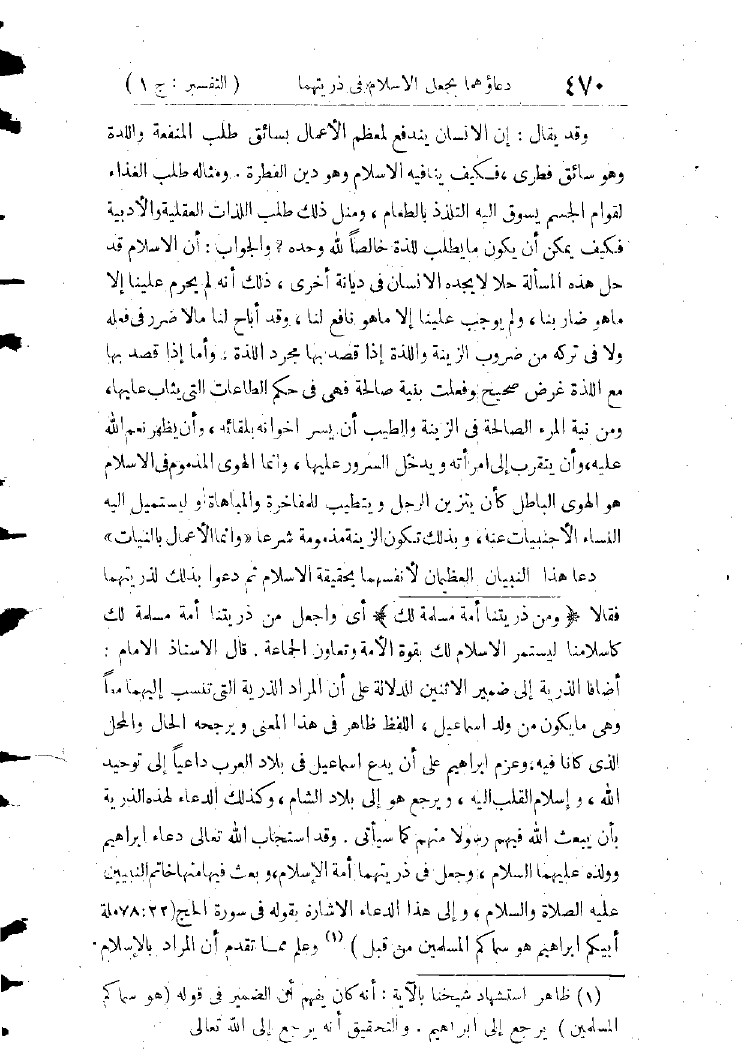 ٤٧٠ دعاؤهما بجعل الاسلام فى ذريتهما ( التفسير : ج ١ )
وقد يقال : إن الانسان يندفع لمعظم الأعمال بسائق طلب المنفعة واللذة
وهو سائق فطرى ، فكيف ينافيه الاسلام وهو دين الفطرة . ومثاله طلب الغذاء
لقوام الجسم يسوق اليه التلذذ بالطعام ، ومثل ذلك طلب اللذات العقلية والأدبية
فكيف يمكن أن يكون مايطلب للذة خالصاً لله وحده ؟ والجواب : أن الاسلام قد
حل هذه المسألة حلا لايجده الانسان فى ديانة أخرى ، ذلك أنه لم يحرم علينا إلا
ماهو ضار بنا ، ولم يوجب علينا إلا ماهو نافع لنا ، وقد أباح لنا مالا ضرر فى فعله
ولا فى تركه من ضروب الزينة واللذة إذا قصد بها مجرد اللذة . وأما إذا قصد بها
مع اللذة غرض صحيح وفعلت بنية صالحة فهى فى حكم الطاعات التى يثاب عليها،
ومن نية المرء الصالحة فى الزينة والطيب أن يسر اخوانه بلقائه ، وأن يظهر نعم الله
عليه، وأن يتقرب إلى امرأته ويدخل السرور عليها ، وانما الهوى المذموم فى الاسلام
هو الهوى الباطل كأن يتزين الرجل ويتطيب للمفاخرة والمباهاة أو ليستميل اليه
النساء الأجنبيات عنه، وبذلك تكون الزينة مذمومة شرعا «وانما الأعمال بالنيات»
دعا هذا النبيان العظيمان لأنفسهما بحقيقة الاسلام ثم دعوا بذلك لذريتهما
فقالا ﴿ ومن ذريتنا أمة مسلمة لك ﴾ أى واجعل من ذريتنا أمة مسلمة لك
كاسلامنا ليستمر الاسلام لك بقوة الأمة وتعاون الجماعة . قال الاستاذ الامام :
أضافا الذرية إلى ضمير الاثنين للدلالة على أن المراد الذرية التى تنسب إليهما معاً
وهى مايكون من ولد اسماعيل ، اللفظ ظاهر فى هذا المعنى ويرجحه الحال والمحل
الذى كانا فيه، وعزم ابراهيم على أن يدع اسماعيل فى بلاد العرب داعياً إلى توحيد
الله ، وإسلام القلب اليه ، ويرجع هو إلى بلاد الشام ، وكذلك الدعاء لهذه الذرية
بأن يبعث الله فيهم رسولا منهم كما سيأتى . وقد استجاب الله تعالى دعاء ابراهيم
وولده عليهما السلام ، وجعل فى ذريتهما أمة الإسلام، وبعث فيها منها خاتم النبيين
عليه الصلاة والسلام ، وإلى هذا الدعاء الاشارة بقوله فى سورة الحج (٧٨:٢٢ ملة
أبيكم ابراهيم هو سماكم المسلمين من قبل ) (١) وعلم مما تقدم أن المراد بالإسلام
(١) ظاهر استشهاد شيخنا بالآية : أنه كان يفهم أن الضمير فى قوله (هو سماكم
المسلمين ) يرجع إلى ابراهيم . والتحقيق أنه يرجع إلى الله تعالى